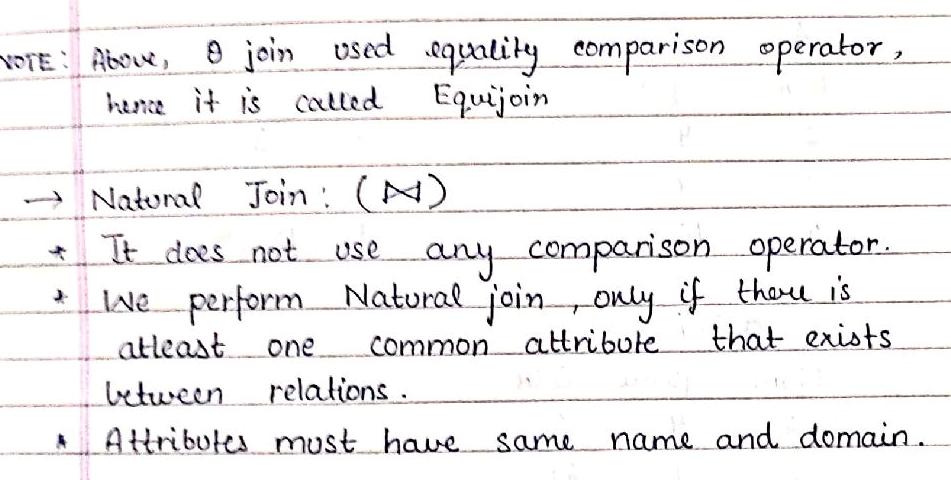 NOTE: Above, θ join used equality comparison operator,
hence it is called Equijoin
→ Natural Join: (⋈)
* It does not use any comparison operator.
* We perform Natural join, only if there is
atleast one common attribute that exists
between relations.
* Attributes must have same name and domain.